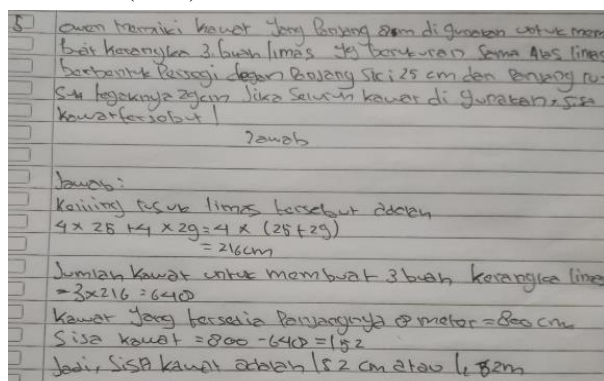 5 Owen memiliki kawat yang panjang 8m di gunakan untuk mem
buat kerangka 3 buah limas yg berukuran sama Alas limas
berbentuk Persegi dengan Panjang sisi 25 cm dan Panjang ru
suk tegaknya 29cm Jika Seluruh kawat di gunakan, sisa
kawat tersebut!
Jawab
Jawab:
Keliling rusuk limas tersebut adalah
4 x 25 + 4 x 29 = 4 x (25 + 29)
= 216cm
Jumlah kawat untuk membuat 3 buah kerangka limas
= 3x216 = 648
Kawat yang tersedia Panjangnya 8 meter = 800 cm
Sisa kawat = 800 - 648 = 152
Jadi, SisA kawat adalah 152 cm atau 1,52m